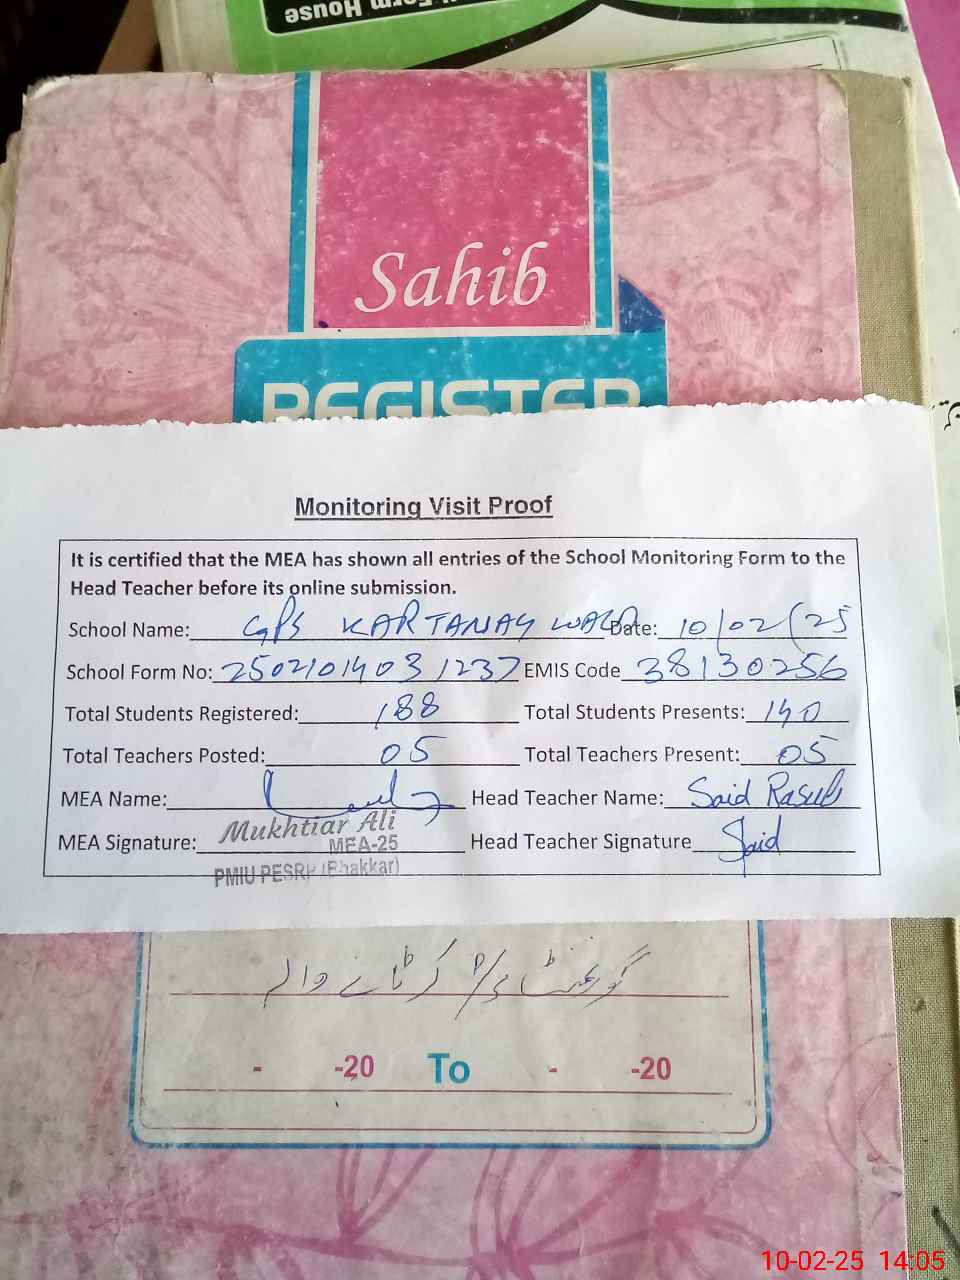 Form House
Sahib
REGISTER
Monitoring Visit Proof
It is certified that the MEA has shown all entries of the School Monitoring Form to the
Head Teacher before its online submission.
School Name: GPS KARTANAY WALA Date: 10/02/25
School Form No: 2502101403 1237 EMIS Code 38130256
Total Students Registered: 188 Total Students Presents: 140
Total Teachers Posted: 05 Total Teachers Present: 05
MEA Name: Head Teacher Name: Said Rasul
MEA Signature: Mukhtiar Ali Head Teacher Signature Said
MEA-25
PMIU PESRP (Bhakkar)
گورنمنٹ کرٹانے والہ
- -20 To - -20
10-02-25 14:05